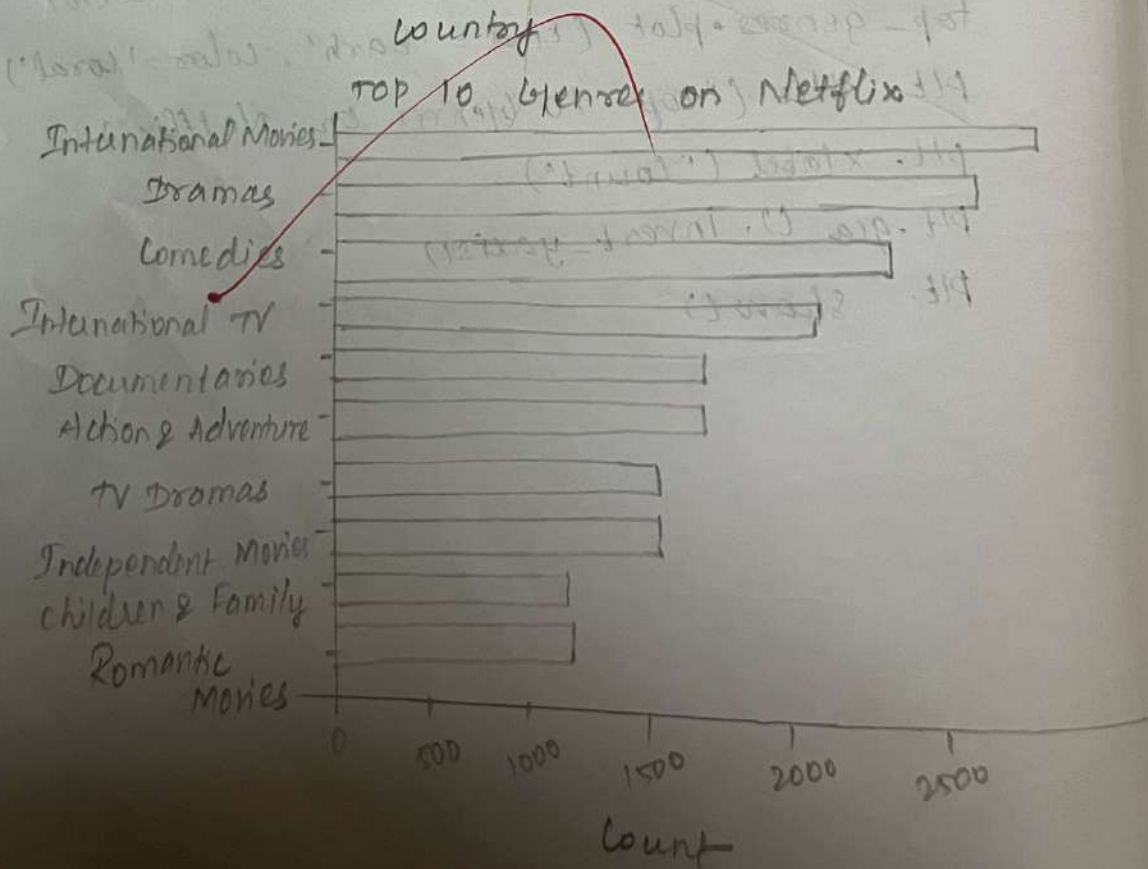 country
TOP 10 Genres on Netflix
International Movies
Dramas
Comedies
International TV
Documentaries
Action & Adventure
TV Dramas
Independent Movies
Children & Family
Romantic
Movies
0 500 1000 1500 2000 2500
Count